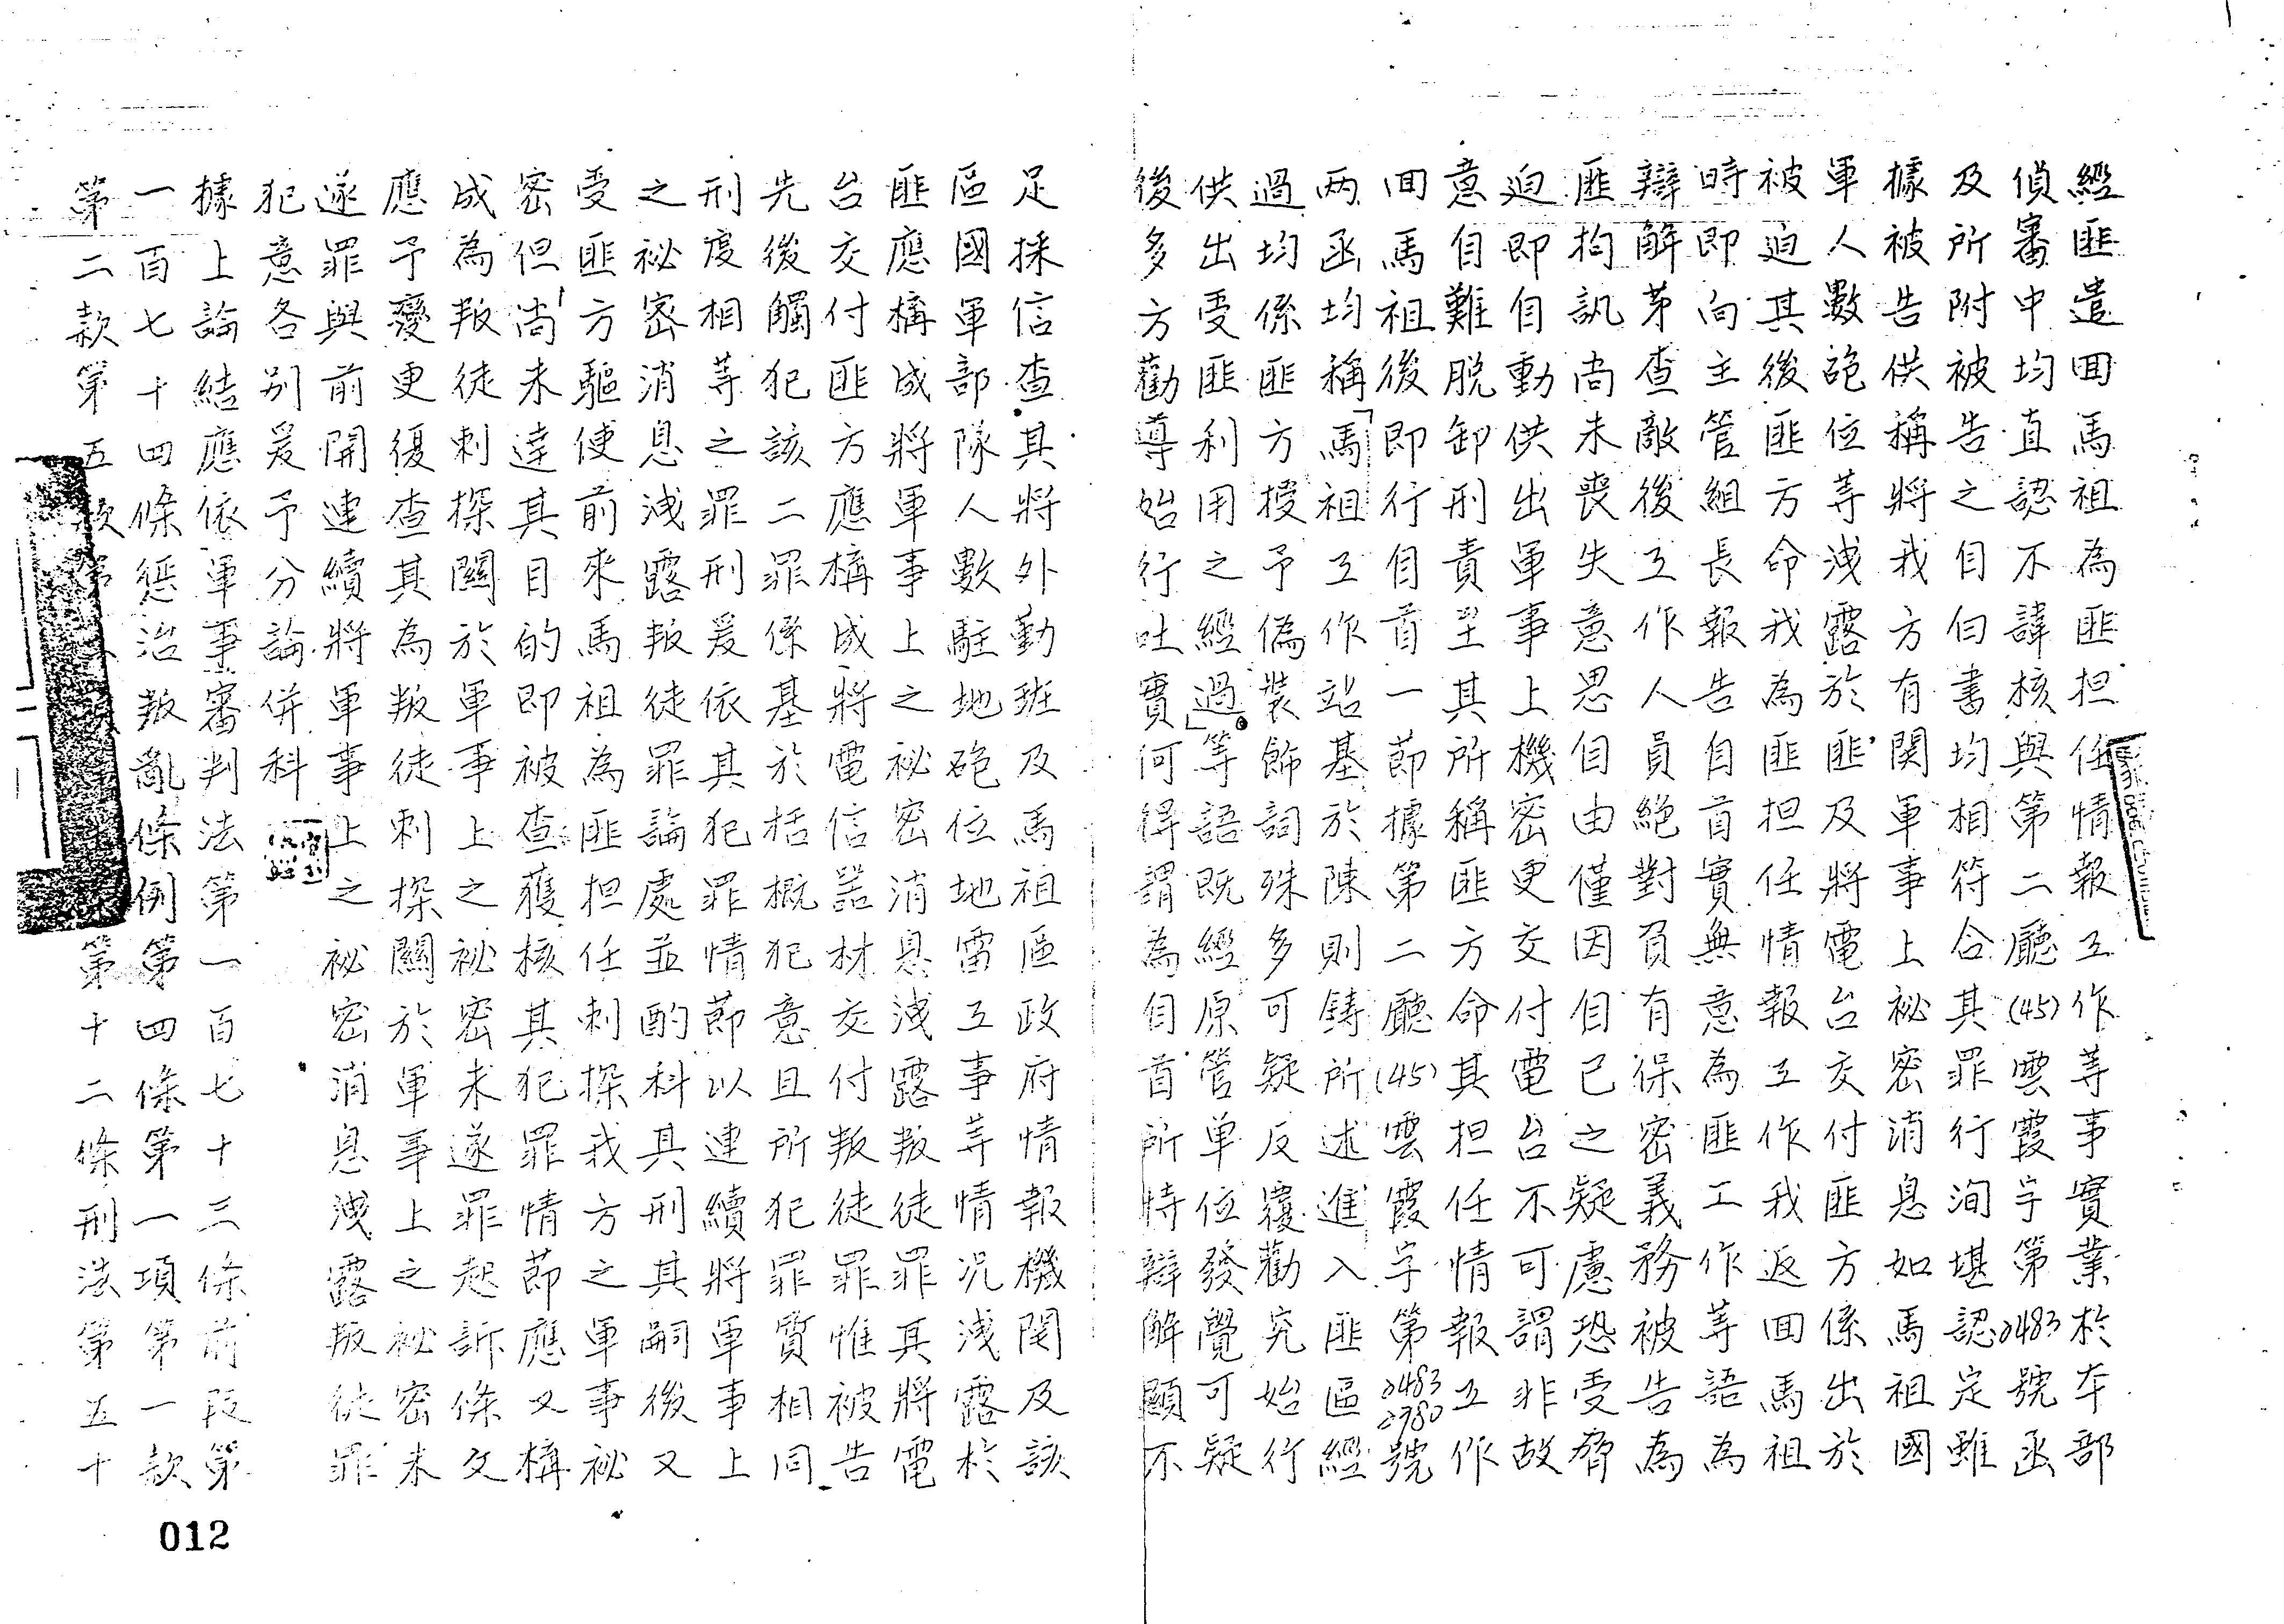 經匪遣回馬祖為匪担任情報工作等事實業於本部
偵審中均直認不諱核與第二廳(45)雲霞字第2483號函
及所附被告之自白書均相符合其罪行洵堪認定雖
據被告供稱將我方有関軍事上祕密消息如馬祖國
軍人數砲位等洩露於匪及將電台交付匪方係出於
被迫其後匪方命我為匪担任情報工作我返回馬祖
時即向主管組長報告自首實無意為匪工作等語為
辯解苐查敵後工作人員絕對負有保密義務被告為
匪拘訊尚未喪失意思自由僅因自己之疑慮恐受脅
迫即自動供出軍事上機密更交付電台不可謂非故
意自難脫卸刑責至其所稱匪方命其担任情報工作
回馬祖後即行自首一節據第二廳(45)雲霞字第2483 2780號
两函均稱「馬祖工作站基於陳則鑄所述進入匪區經
過均係匪方授予偽裝飾詞殊多可疑反覆勸究始行
供出受匪利用之經過」等語既經原管单位發覺可疑
後多方勸導始行吐實何得謂為自首所恃辯解顯不
足採信查其將外勤班及馬祖區政府情報機関及該
區國軍部隊人數駐地砲位地雷工事等情况洩露於
匪應構成將軍事上之祕密消息洩露叛徒罪其將電
台交付匪方應構成將電信器材交付叛徒罪惟被告
先後觸犯該二罪係基於括概犯意且所犯罪質相同
刑度相等之罪刑爰依其犯罪情節以連續將軍事上
之祕密消息洩露叛徒罪論處並酌科其刑其嗣後又
受匪方驅使前來馬祖為匪担任刺探我方之軍事祕
密但尚未達其目的即被查獲核其犯罪情節應又構
成為叛徒刺探關於軍事上之祕密未遂罪起訴條文
應予變更復查其為叛徒刺探關於軍事上之祕密未
遂罪與前開連續將軍事上之祕密消息洩露叛徒罪
犯意各别爰予分論併科
據上論結應依軍事審判法第一百七十三條前段第
一百七十四條懲治叛亂條例第四條第一項第一款
第二款第五款第十二條刑法第五十
012